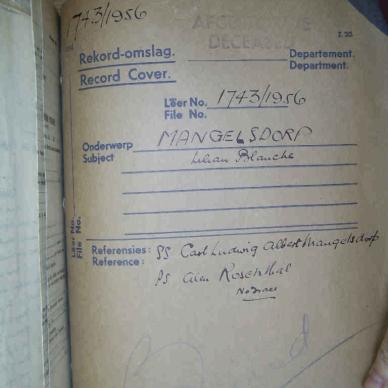 1743/1956
AFGESTORWENE
DECEASED
Z.20.
Rekord-omslag. Departement.
Record Cover. Department.
Lêer No. 1743/1956
File No.
Onderwerp MANGELSDORF
Subject Lilian Blanche
Lêer No.
File No.
Referensies: SS Carl Ludwig Albert Mangelsdorf
Reference: PS Alan Rosenthal
No Trace